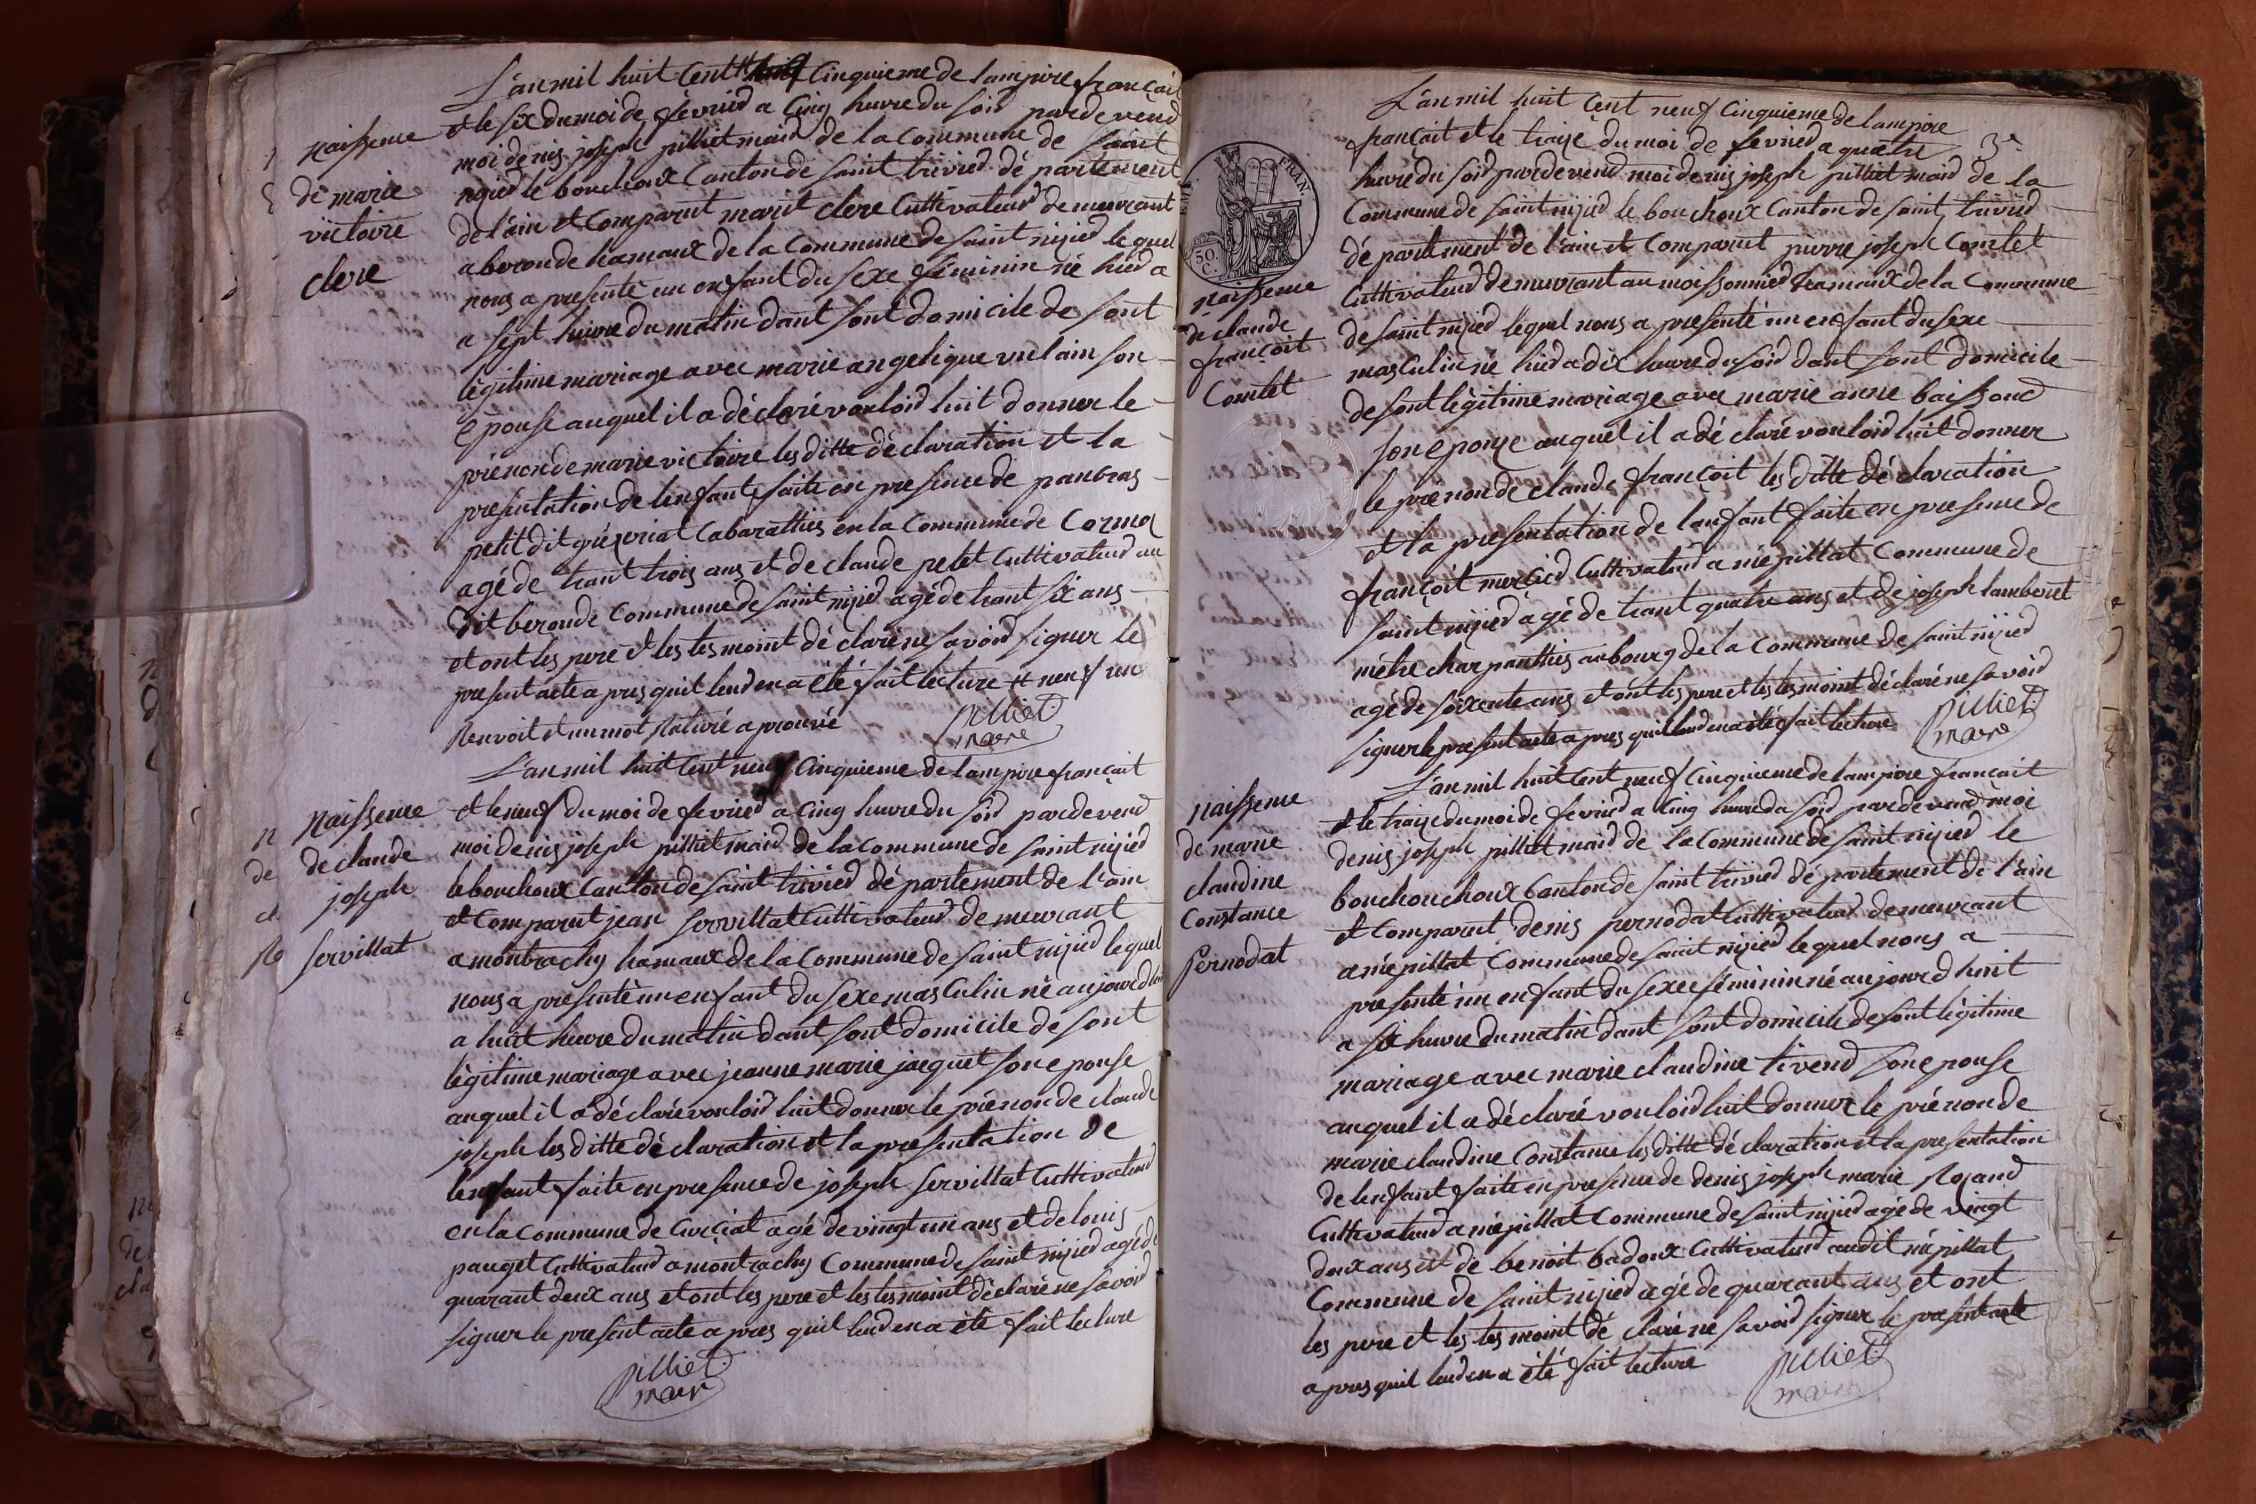 L'an mil huit Cent # Cinquieme de lampire françait
et le six du moi de février a Cinq heure du soir par devend
Naissence
de marie
victoire
clere
moi denis joseph pilliet maird de la Commune de saint
nijied le bouchoux Canton de saint trivied dé partement
de l'ain et Comparut marit clere Cuttivateud demeurant
a beronde hamaux de la Commune de saint nijied le quel
nous a presenté un enfant du sexe féminin né hied a
a sept huire du matin dant sont domicile de sont
légitime mariage avec marie angelique vulain son
épouse auquel il a déclaré vouloid luit donner le
prénon de marie victoire les ditte déclaration et la
presentation de lenfant faite en presence de panbras
petit dit guéxeriat Cabaratties en la Commune de Cormoz
agé de trant trois ans et de claude petet Cuttivateud au
dit beronde Commune de saint nijied agé de trant six ans
et ont les pere et les tesmoint déclaré ne savoird signer le
present acte a pres quit leud en a été fait lecture # neuf un
Renvoit et un mot Raturé a prouvé
pilliet
maire
L'an mil huit Cent neuf Cinquieme de lampire françait
Naissence
de claude
joseph
servillat
et le neuf du moi de fevried a Cinq heure du soir pardevend
moi denis joseph pilliet maird de la Commune de saint nijied
le bouchoux Canton de saint trivied dé partement de l'ain
et Comparut jean servillat Cuttivateud demeurant
a montrachy hamaux de la Commune de saint nijied le quel
nous a presenté un enfant du sexe masCulin né aujourd
a huit heure du matin dant sont domicile de sont
légitime mariage avec jeanne marie jacquet son epouse
auquel il a déclaré vouloid luit donner le prénon de claude
joseph les ditte déclaration et la presentation de
lenfant faite en presence de joseph servillat Cuttivateud
en la Commune de Curciat agé de vingt un ans et de louis
pauget Cuttivateud a montrachy Commune de saint nijied agé de
quarant deux ans et ont les pere et les tesmoint déclaré ne savoird
signer le present acte a pres quit leud en a été fait lecture
pilliet
mair
L'an mil huit Cent neuf Cinquieme de lampire
françait et le traize du moi de fevried a quatre
3e
EMP. FRAN.
50.
C.
heure du soir pardevend moi denis joseph pilliet maird de la
Commune de saint nijied le bouchoux Canton de saint trivied
dé partement de l'ain et Comparut pierre joseph Comtet
Cuttivateud demeurant au moissonnied hamaux de la Commune
Naissence
de claude
françoit
Comtet
de saint nijied lequel nous a presenté un enfant du sexe
masCulin né hied a dix heure du soir dant sont domicile
de sont légitime mariage avec marie anne baissond
son epouze auquel il a dé claré vouloid luit donner
le prénon de claude françoit les ditte déclaration
et la presentation de lanfant faite en presence de
françoit mercied Cuttivateud a népillat Commune de
saint nijied agé de trant quatre ans et de joseph lamberet
métre charpantties au bourg de la Commune de saint nijied
agé de soixente ans et ont les pere et les tesmoint déclaré ne savoird
signer le present acte a pres quit leud en a été fait lecture
pilliet
maire
L'an mil huit Cent neuf Cinquieme de lampire françait
Naissence
de marie
claudine
Constance
pernodat
et le traize du moi de fevried a Cinq heure du soir pardevend moi
denis joseph pilliet maird de la Commune de saint nijied le
bouchouchoux Canton de saint trivied dé partement de l'ain
et Comparut denis pernodat Cuttivateud demeurant
a népillat Commune de saint nijied lequel nous a
presenté un enfant du sexe féminin né aujourd huit
a six heure du matin dant sont domicile de sont légitime
mariage avec marie claudine tivend son epouse
auquel il a déclaré vouloid luit donner le prénon de
marie claudine Constance les ditte déclaration et la presentation
de lenfant faite en presence de denis joseph marie Rojand
Cuttivateud a népillat Commune de saint nijied agé de vingt
deux ans et de benoit badoux Cuttivateud audit népillat
Commune de saint nijied agé de quarant ans et ont
les pere et les tesmoint dé claré ne savoird signer le present acte
a pres quit leud en a été fait lecture
pilliet
maire